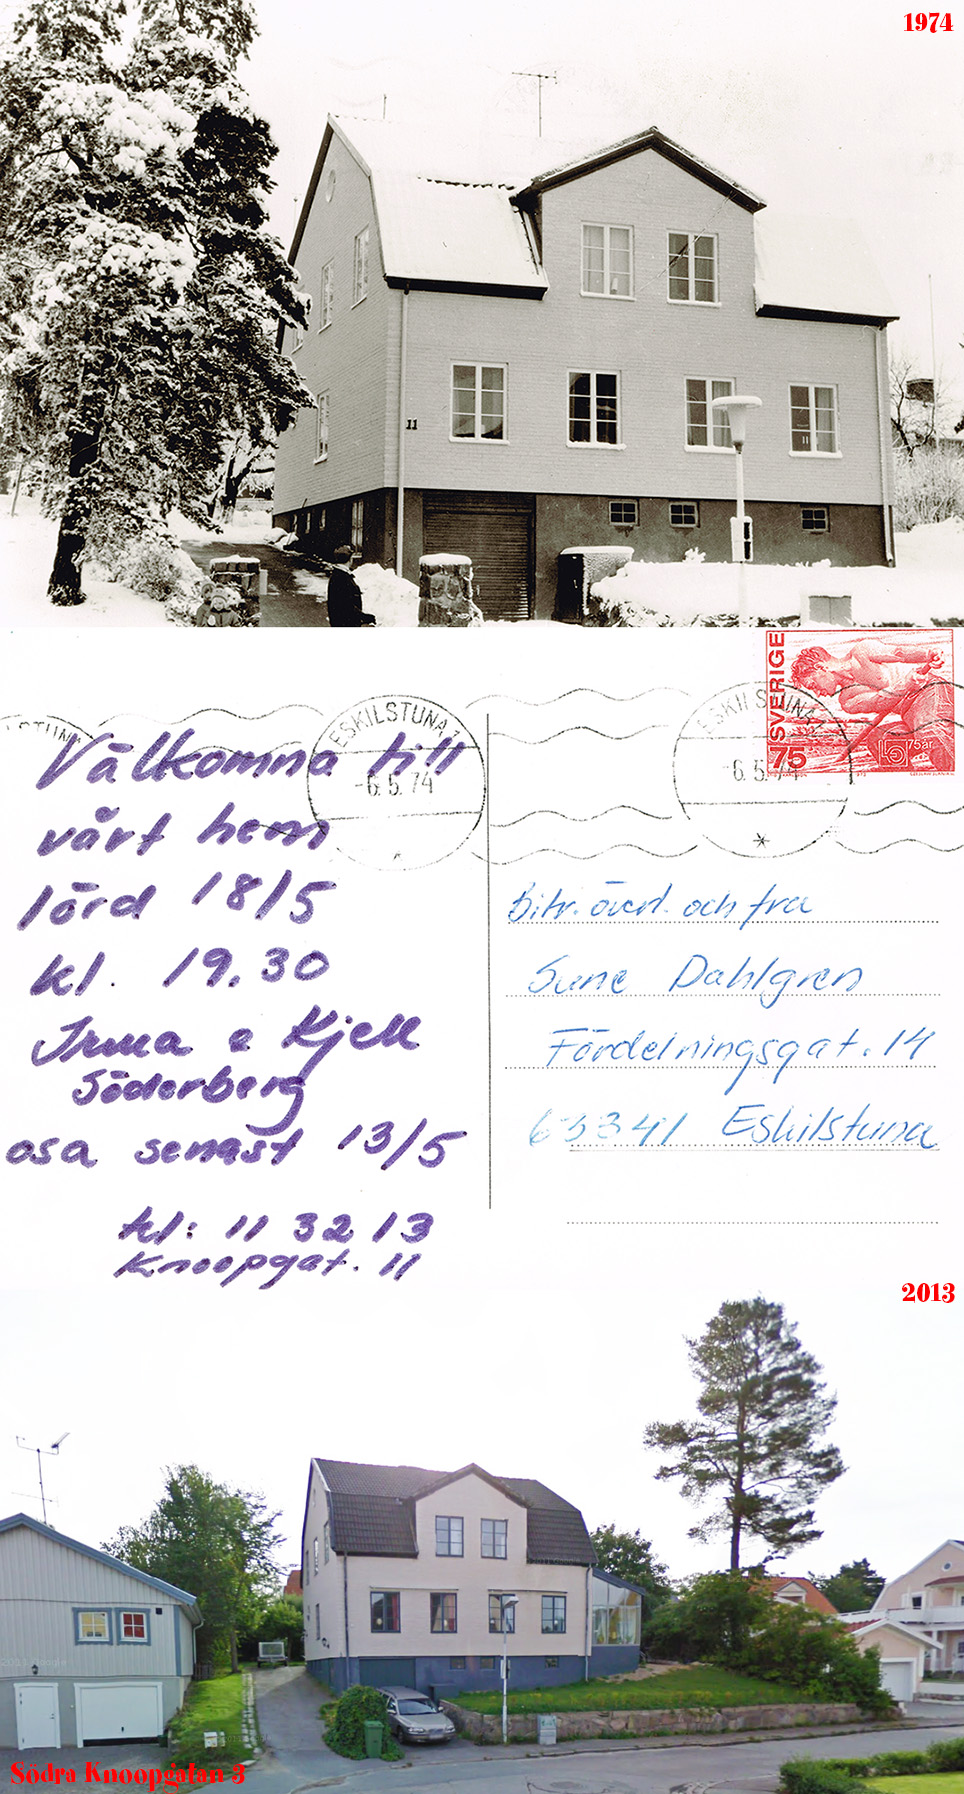 1974
11
SVERIGE
75
LO 75år
ESKILSTUNA 1
-6.5.74
ESKILSTUNA 1
-6.5.74
Välkomna till
vårt hem
lörd 18/5
kl. 19.30
Irma o Kjell
Söderberg
osa senast 13/5
tel: 11 32 13
Knoopgat. 11
Bitr. överl. och fru
Sune Dahlgren
Fördelningsgat. 14
63341 Eskilstuna
2013
Södra Knoopgatan 3